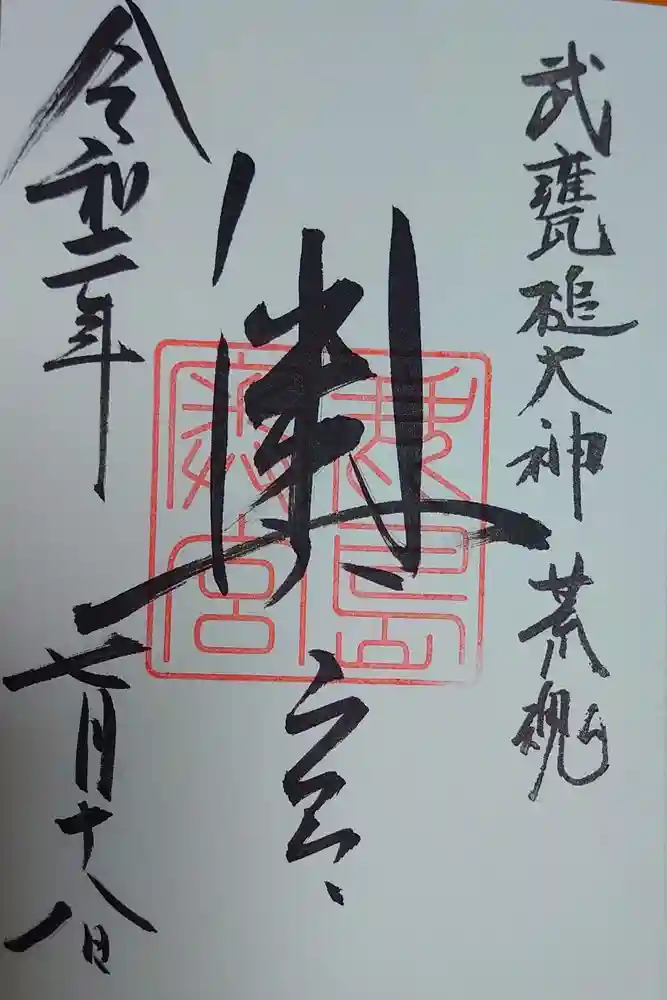 武甕槌大神 荒魂
奥宮
鹿島
奥宮
令和二年 七月十八日